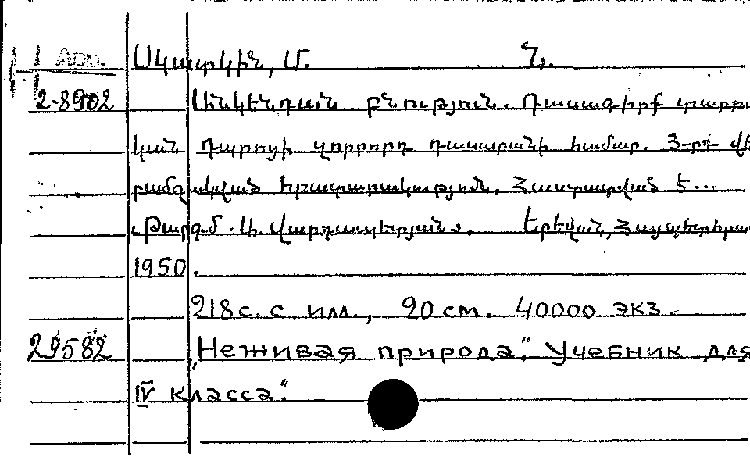 Սկատկին, Մ. Ն.
2-8902 Անկենդան բնություն. Դասագիրք տարրա
կան դպրոցի չորրորդ դասարանի համար. 3-րդ վե
րամշակված հրատարակություն. Հաստատված է...
Թարգմ. Ա. Վարդապետյան. Երեվան, Հայպետհրատ
1950.
218 с. с илл., 20 см. 40000 экз.
29582 „Неживая природа". Учебник для
IV класса".